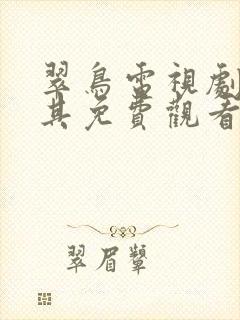 翠鳥雷視劇
其免費觀看
翠眉顰